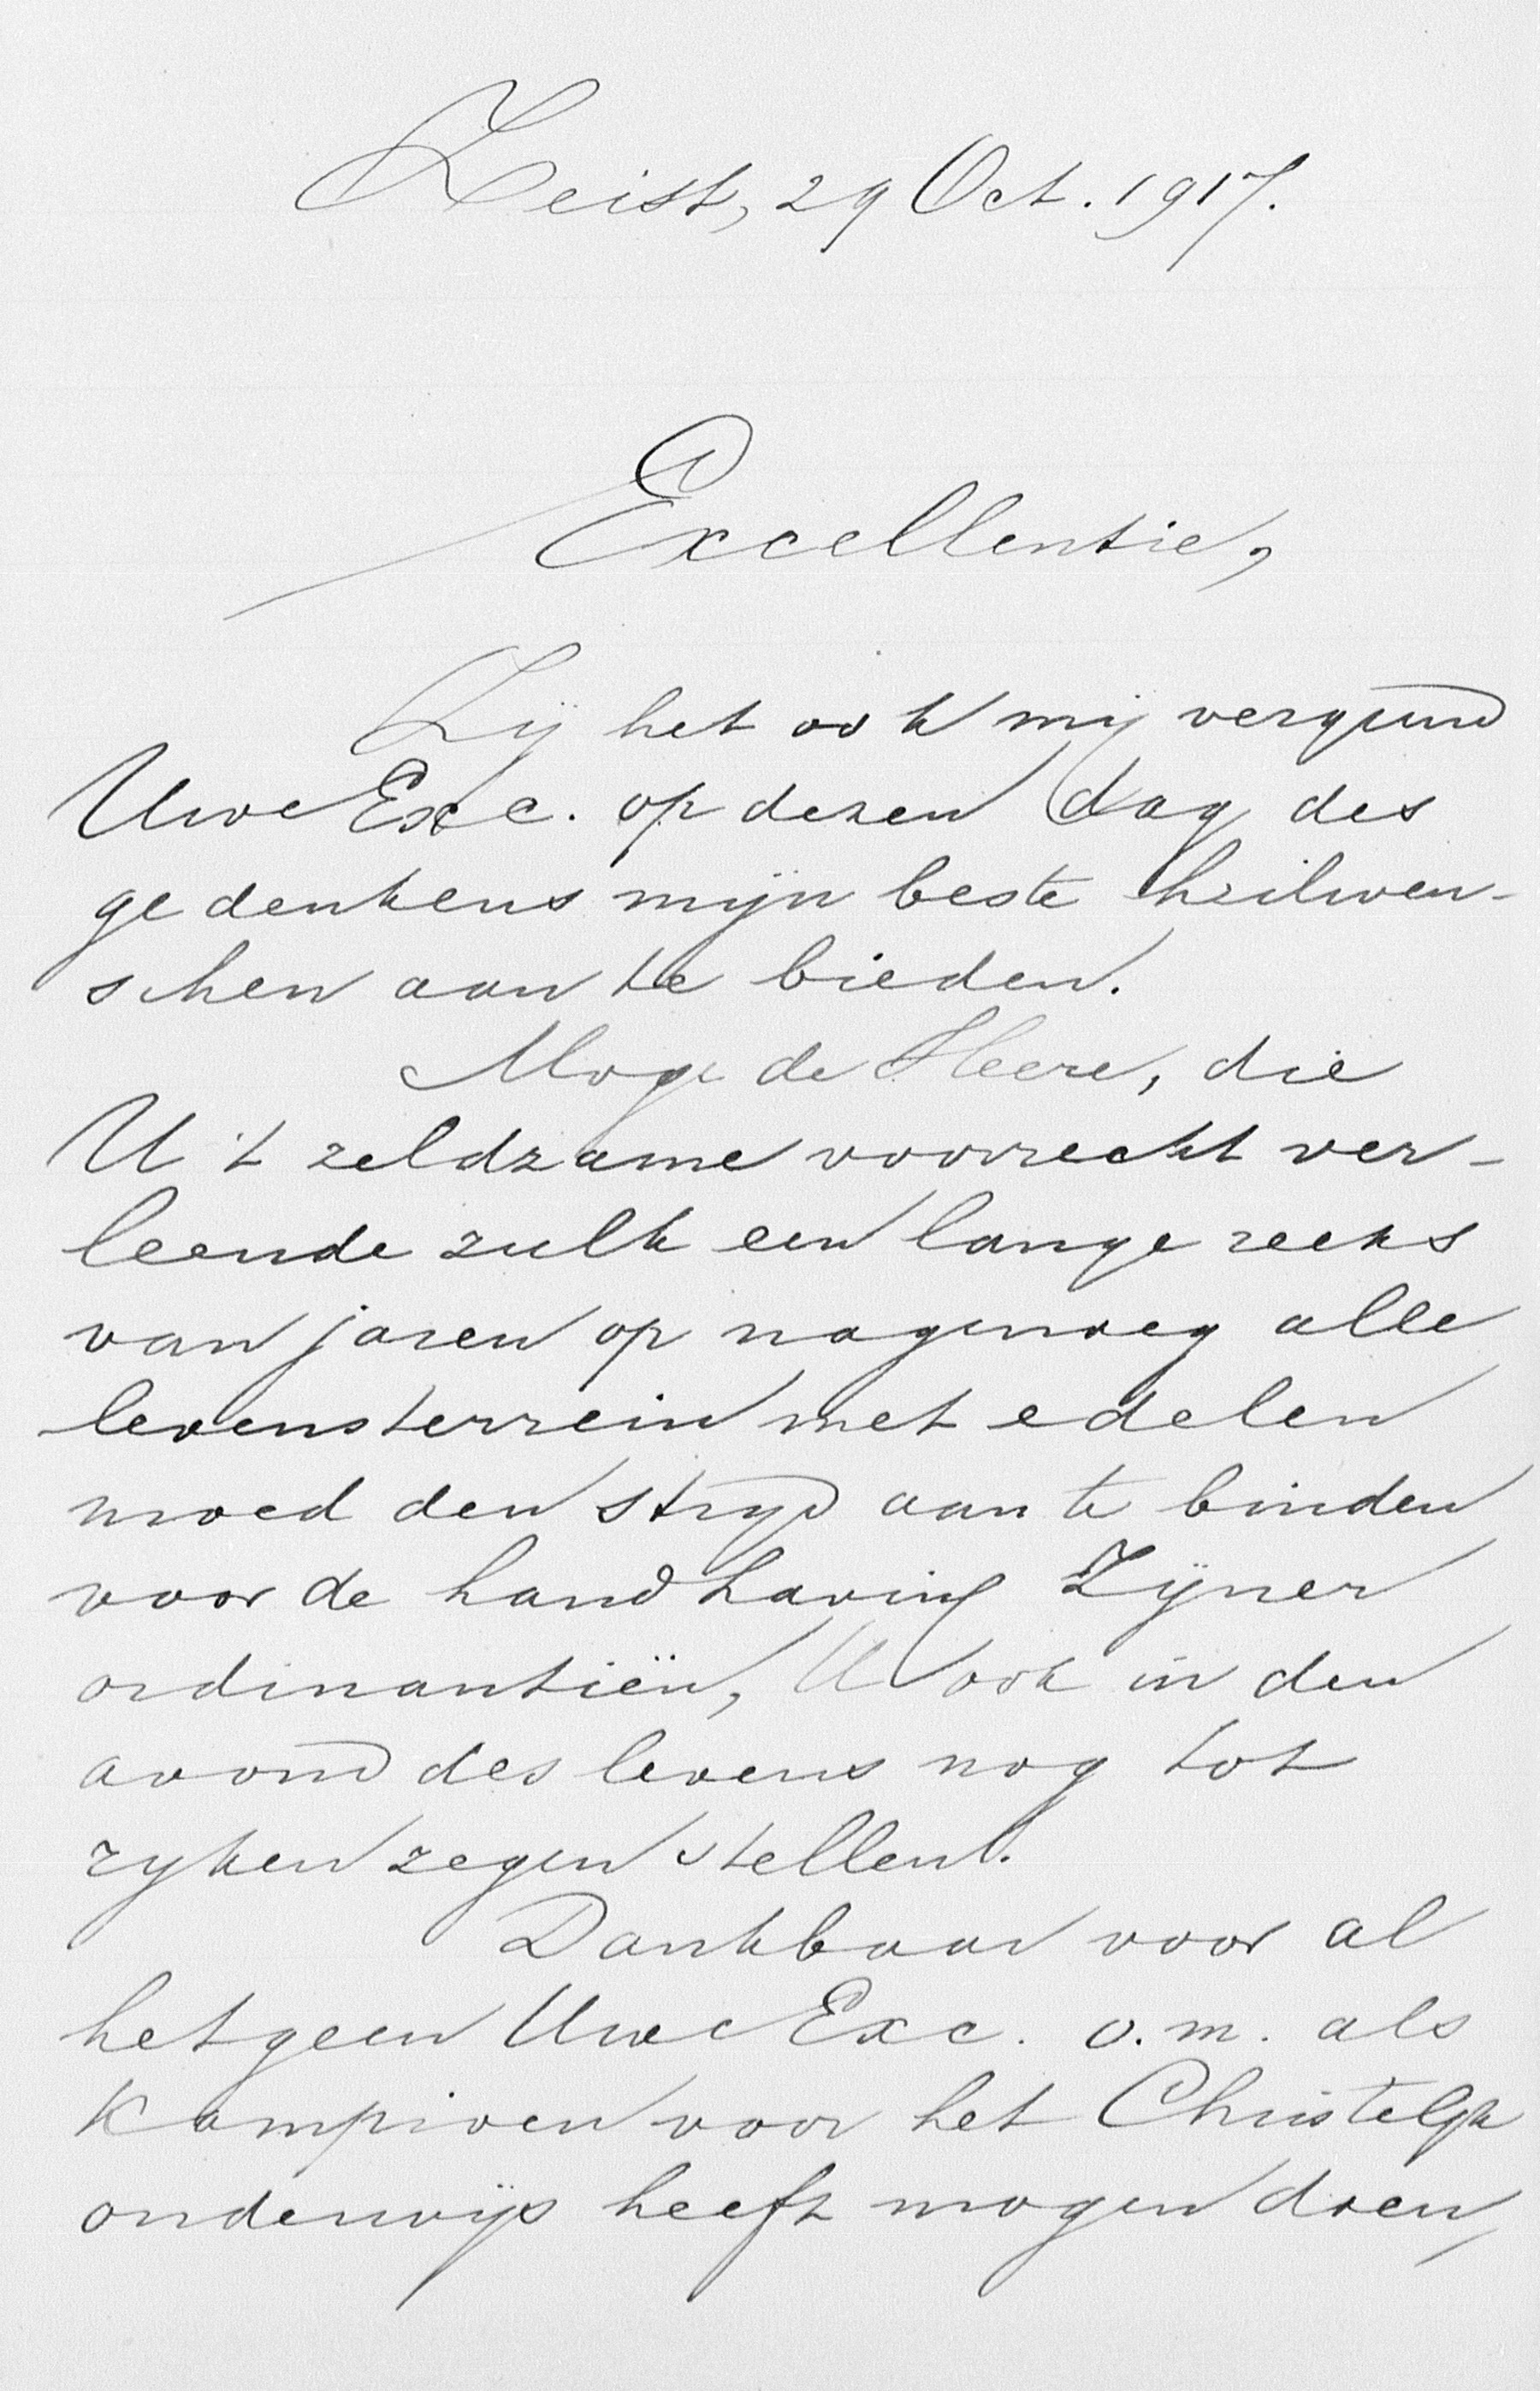 Zeist, 29 Oct. 1917.
Excellentie,
Zij het ook mij vergund
Uwe Exc. op dezen dag des
gedenkens mijn beste heilwen-
schen aan te bieden.
Moge de Heere, die
U 't zeldzame voorrecht ver-
leende zulk een lange reeks
van jaren op nagenoeg alle
levensterrein met edelen
moed den stryd aan te binden
voor de handhaving Zijner
ordinantiën, U ook in den
avond des levens nog tot
ryken zegen stellen.
Dankbaar voor al
hetgeen Uwe Exc. o.m. als
Kampioen voor het Christelijk
onderwijs heeft mogen doen,